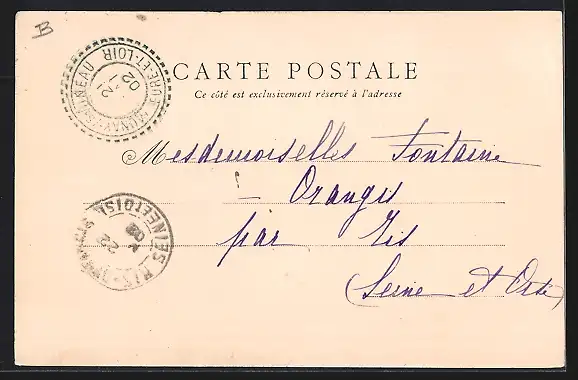 B
EURE-ET-LOIR
21
02
CARTE POSTALE
Ce côté est exclusivement réservé à l'adresse
Mesdemoiselles Fontaine
- Orangis
par Ris
(Seine et Oise)
RIS-ORANGIS SEINE-ET-OISE
22
02